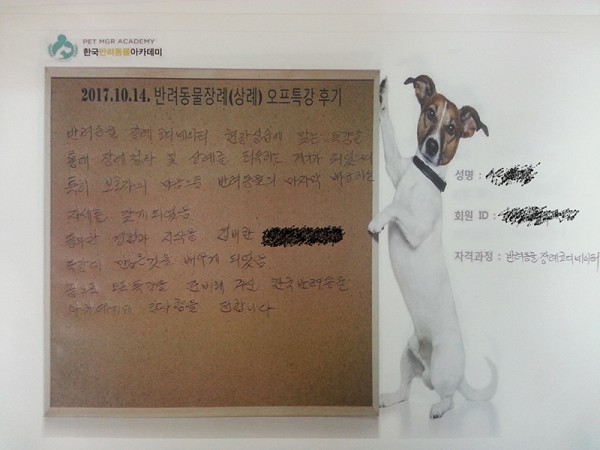 PET MGR ACADEMY
한국반려동물아카데미
2017.10.14. 반려동물장례(상례) 오프특강 후기
반려동물 장례코디네이터 현장실습에 맞는 특강을
통해 장례절차 및 상례를 되새기는 계기가 되었으며
특히 보호자의 마음으로 반려동물의 마지막 배웅하는
자세를 갖게 되었음
풍부한 경험과 지식을 겸비한
많은것을 배우게 되었음
특강을 준비해 주신 한국반려동물
아카데미에 감사함을 전합니다
성명 :
회원 ID :
자격과정 : 반려동물 장례코디네이터